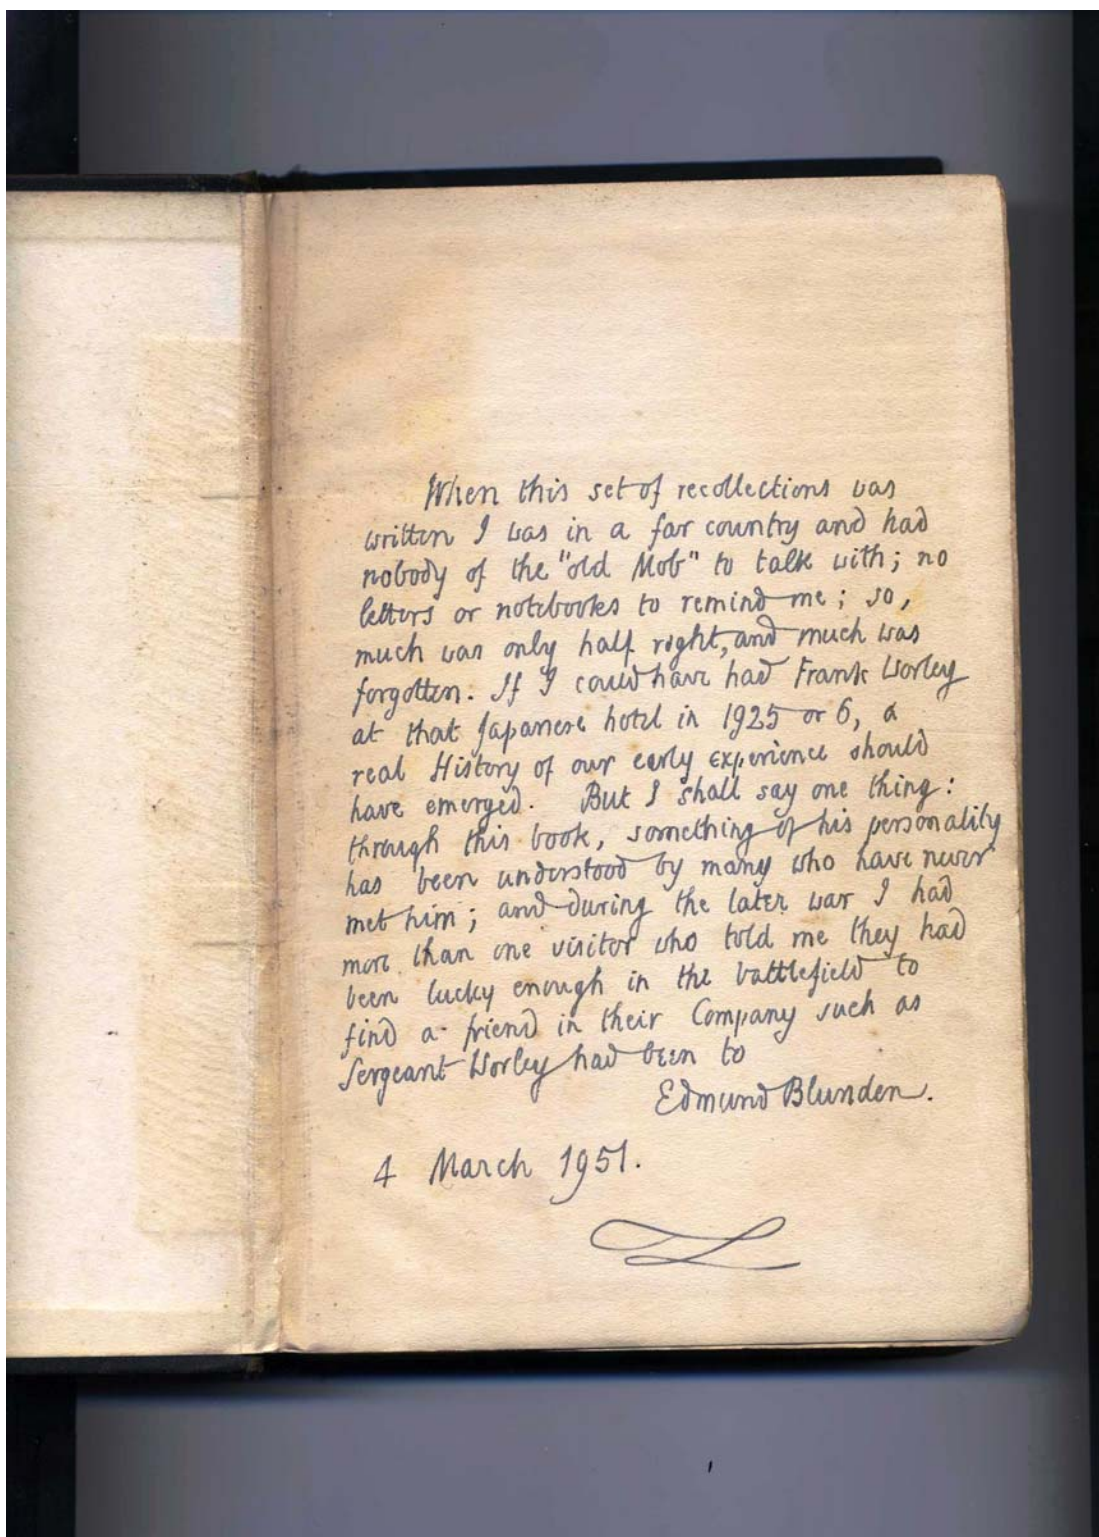 When this set of recollections was
written I was in a far country and had
nobody of the "old Mob" to talk with; no
letters or notebooks to remind me; so,
much was only half right, and much was
forgotten. If I could have had Frank Worley
at that Japanese hotel in 1925 or 6, a
real History of our early experience should
have emerged. But I shall say one thing:
through this book, something of his personality
has been understood by many who have never
met him; and during the later war I had
more than one visitor who told me they had
been lucky enough in the battlefield to
find a friend in their Company such as
Sergeant Worley had been to
Edmund Blunden.
4 March 1951.